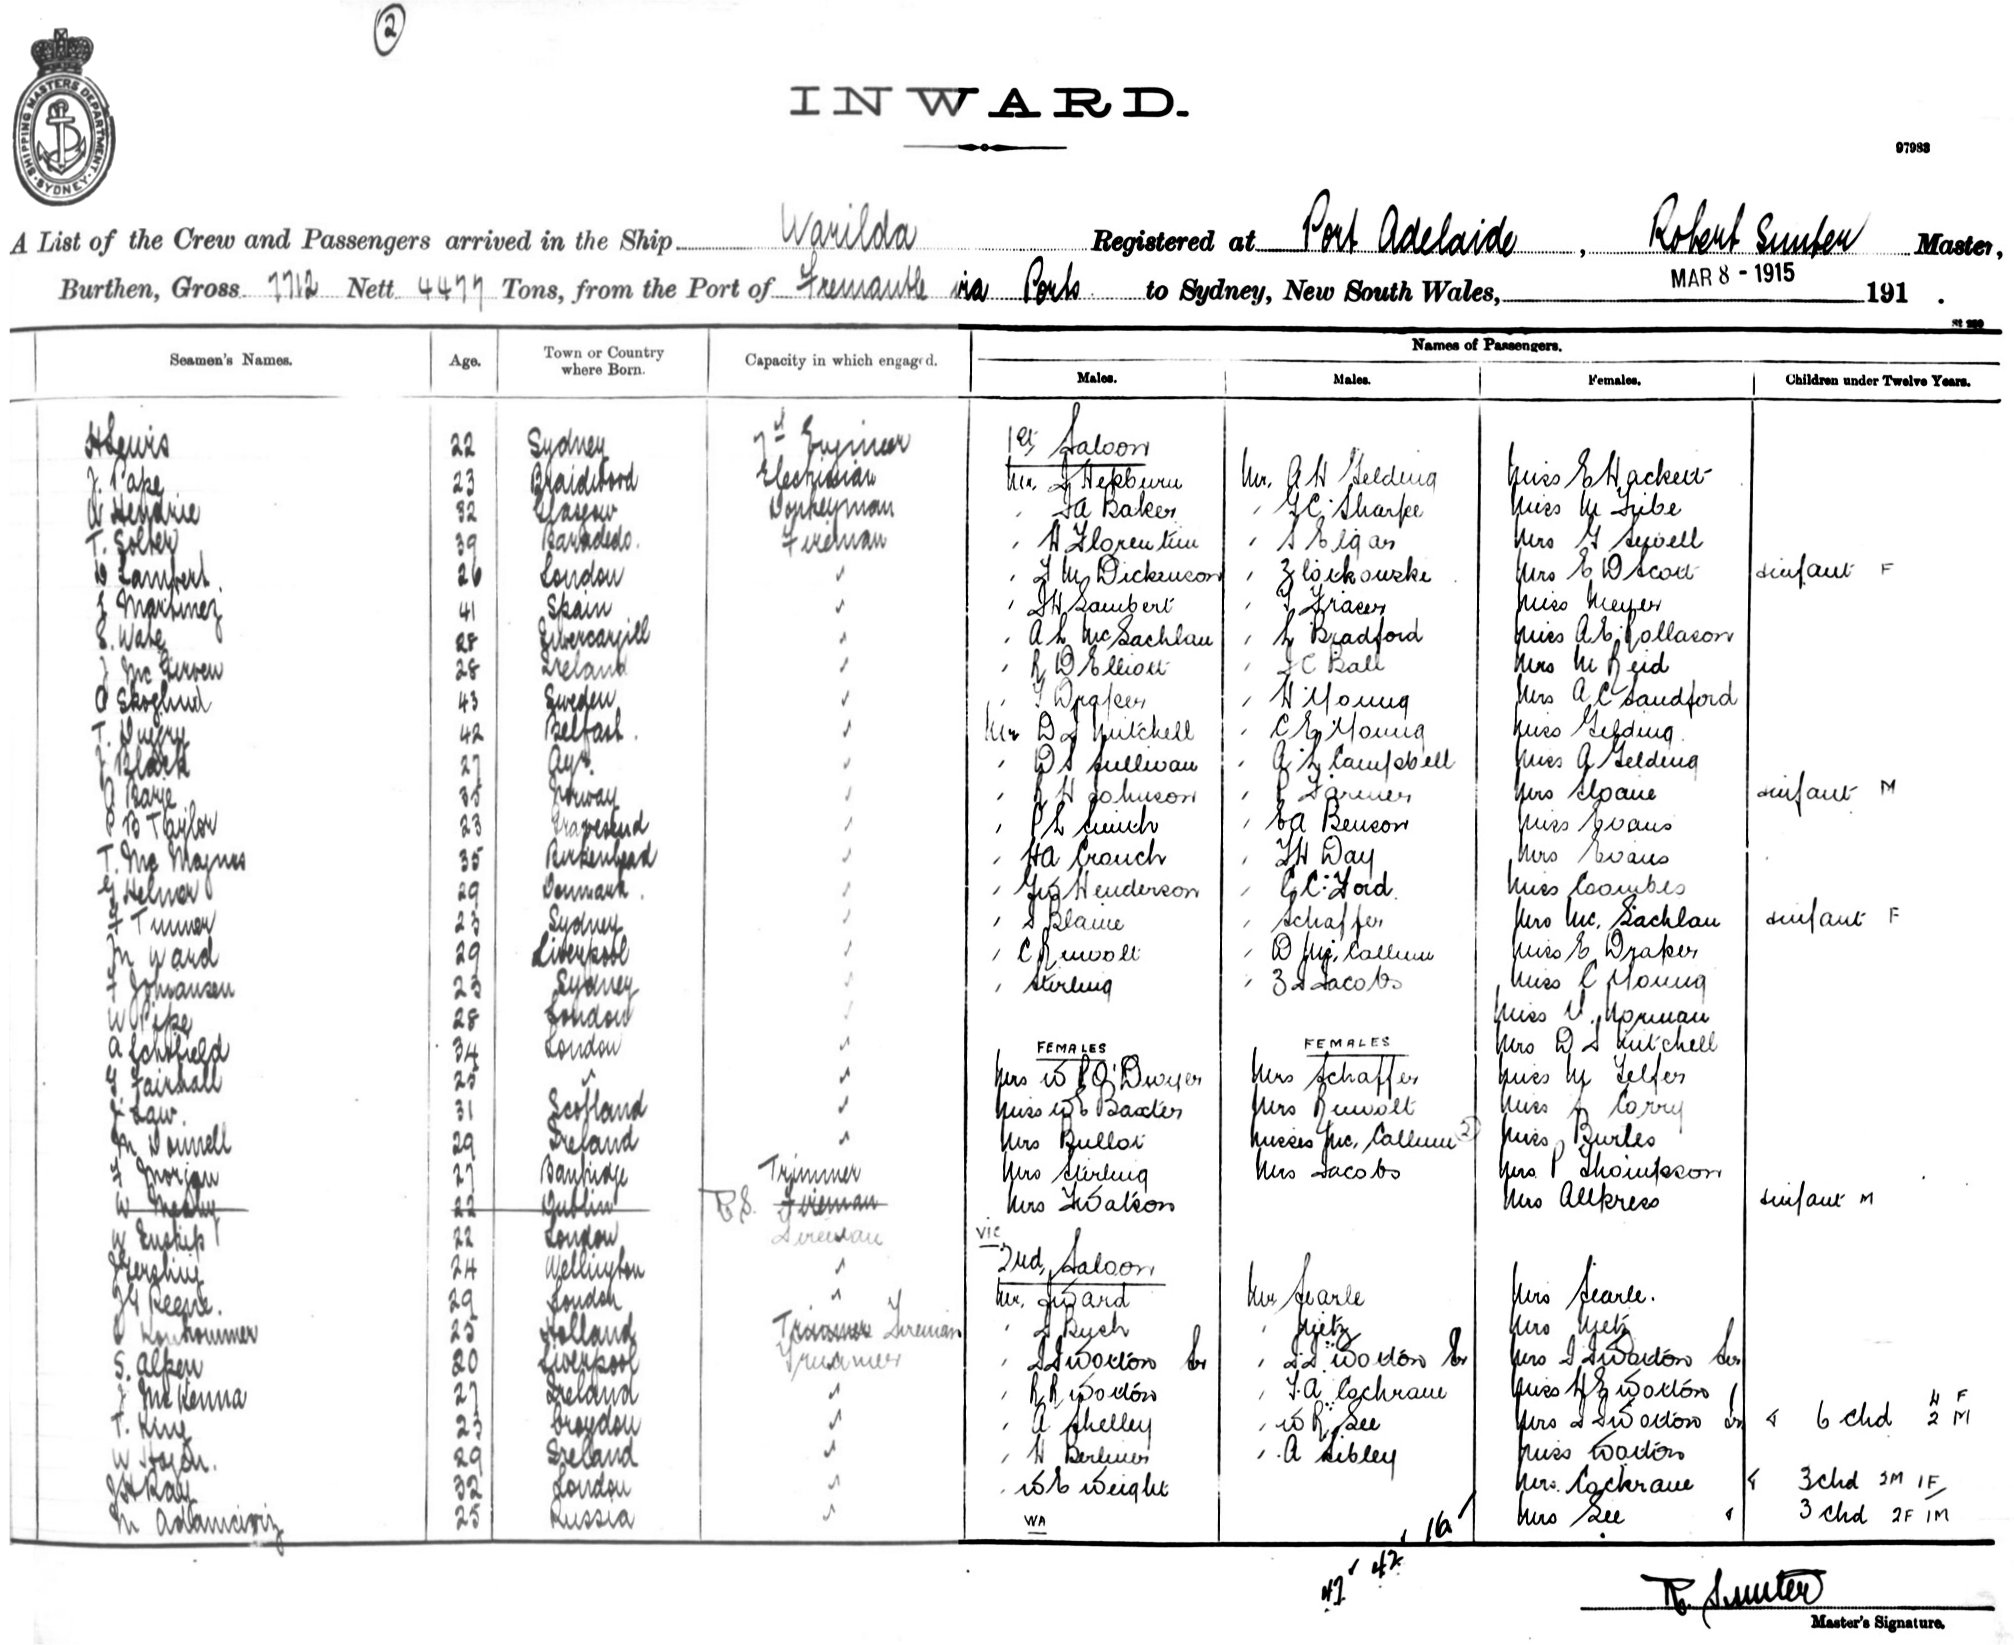 2
SHIPPING MASTERS DEPARTMENT
SYDNEY
INWARD.
97983
A List of the Crew and Passengers arrived in the Ship Warilda Registered at Port Adelaide, Robert Sunter Master,
Burthen, Gross 7712 Nett 4477 Tons, from the Port of Fremantle via Ports to Sydney, New South Wales, MAR 8 - 1915 191 .
Seamen's Names. Age. Town or Country where Born. Capacity in which engaged. Names of Passengers.
Males. Males. Females. Children under Twelve Years.
H Lewis 22 Sydney 7th Engineer 1st Saloon
J. Pape 23 Braidwood Electrician Mr. J Hepburn Mr. A H Gelding Miss E Hackett
W Hendrie 32 Glasgow Donkeyman " F A Baker " Sharpe Miss M
T. Solber 39 Fireman " H Florentin " S Elgar Mrs G Sewell
D Lambert. 26 London " " Dickenson " Mrs E D Scott infant F
J Martinez 41 Spain " " Lambert " Miss Meyer
S. Ware 28 Invercargill " " A L McLachlan " L Bradford Miss A E Collason
J McGirven 28 Ireland " " R D Elliott " Ball Mrs M Reid
O Skoglund 43 Sweden " " Draper " H Young Mrs A C Sandford
T. Duffry 42 Belfast. " Mr D S Mitchell " C E Young Miss Gelding.
J Black 27 Ayr. " " D S Sullivan " A L Campbell Miss A Gelding
35 Norway " " R H Johnson " Farmer Mrs Sloane infant M
P B Taylor 23 Gravesend " " P L " E A Benson Miss Evans
T. Mc Magnus 35 Birkenhead " " H A Crouch " Day Mrs Evans
G Helmer 29 Denmark. " " Geo Henderson " Ford. Miss Coombes
F Turner 23 Sydney " " S Blaine " Schaffer Mrs Mc. Lachlan infant F
M Ward 29 Liverpool " " C Ruwolt " D Mc. Callum Miss E Draper
F Johansen 23 Sydney " " Stirling " Jacobs Miss C Young
W Pipe 28 London " Miss V. Norman
A Schofield 34 London " FEMALES FEMALES Mrs D S Mitchell
G Fairhall 25 " " Mrs W P O'Dwyer Mrs Schaffer Miss M Telfer
J. Law. 31 Scotland " Miss W E Baxter Mrs Ruwolt Miss Corry
M Donnell 29 Ireland " Mrs Mrs Misses Mc. Callum 2 Miss Burles
F Morgan 27 Banbridge Trimmer Mrs Stirling Mrs Jacobs Mrs P Thompson
W 22 Dublin Fireman Mrs Watson Mrs Allkress infant M
W Enskip 22 London Fireman VIC
24 Wellington " 2nd, Saloon
29 London " Mr. Ward Mr Searle Mrs Searle.
25 Holland Trimmer Fireman " Bush " Metz Mrs Metz
S. Alpen 20 Liverpool Trimmer " Woxton Sr " Woxton Jr Mrs Woxton Sr
J McKenna 27 Ireland " " R R Woxton " F. A. Cochrane Miss H E Woxton
T. King 23 Croydon " " A Shelley " W R. See Mrs Woxton Jr & 6 Chd 4 F 2 M
W 29 Ireland " " H Berliner " A Sibley Miss Woxton
J H Ray 32 London " " W E Weight Mrs. Cochrane & 3 chd 2M 1F
M 25 Russia " WA Mrs See & 3 chd 2F 1M
47 42 16
R. Sunter
Master's Signature.